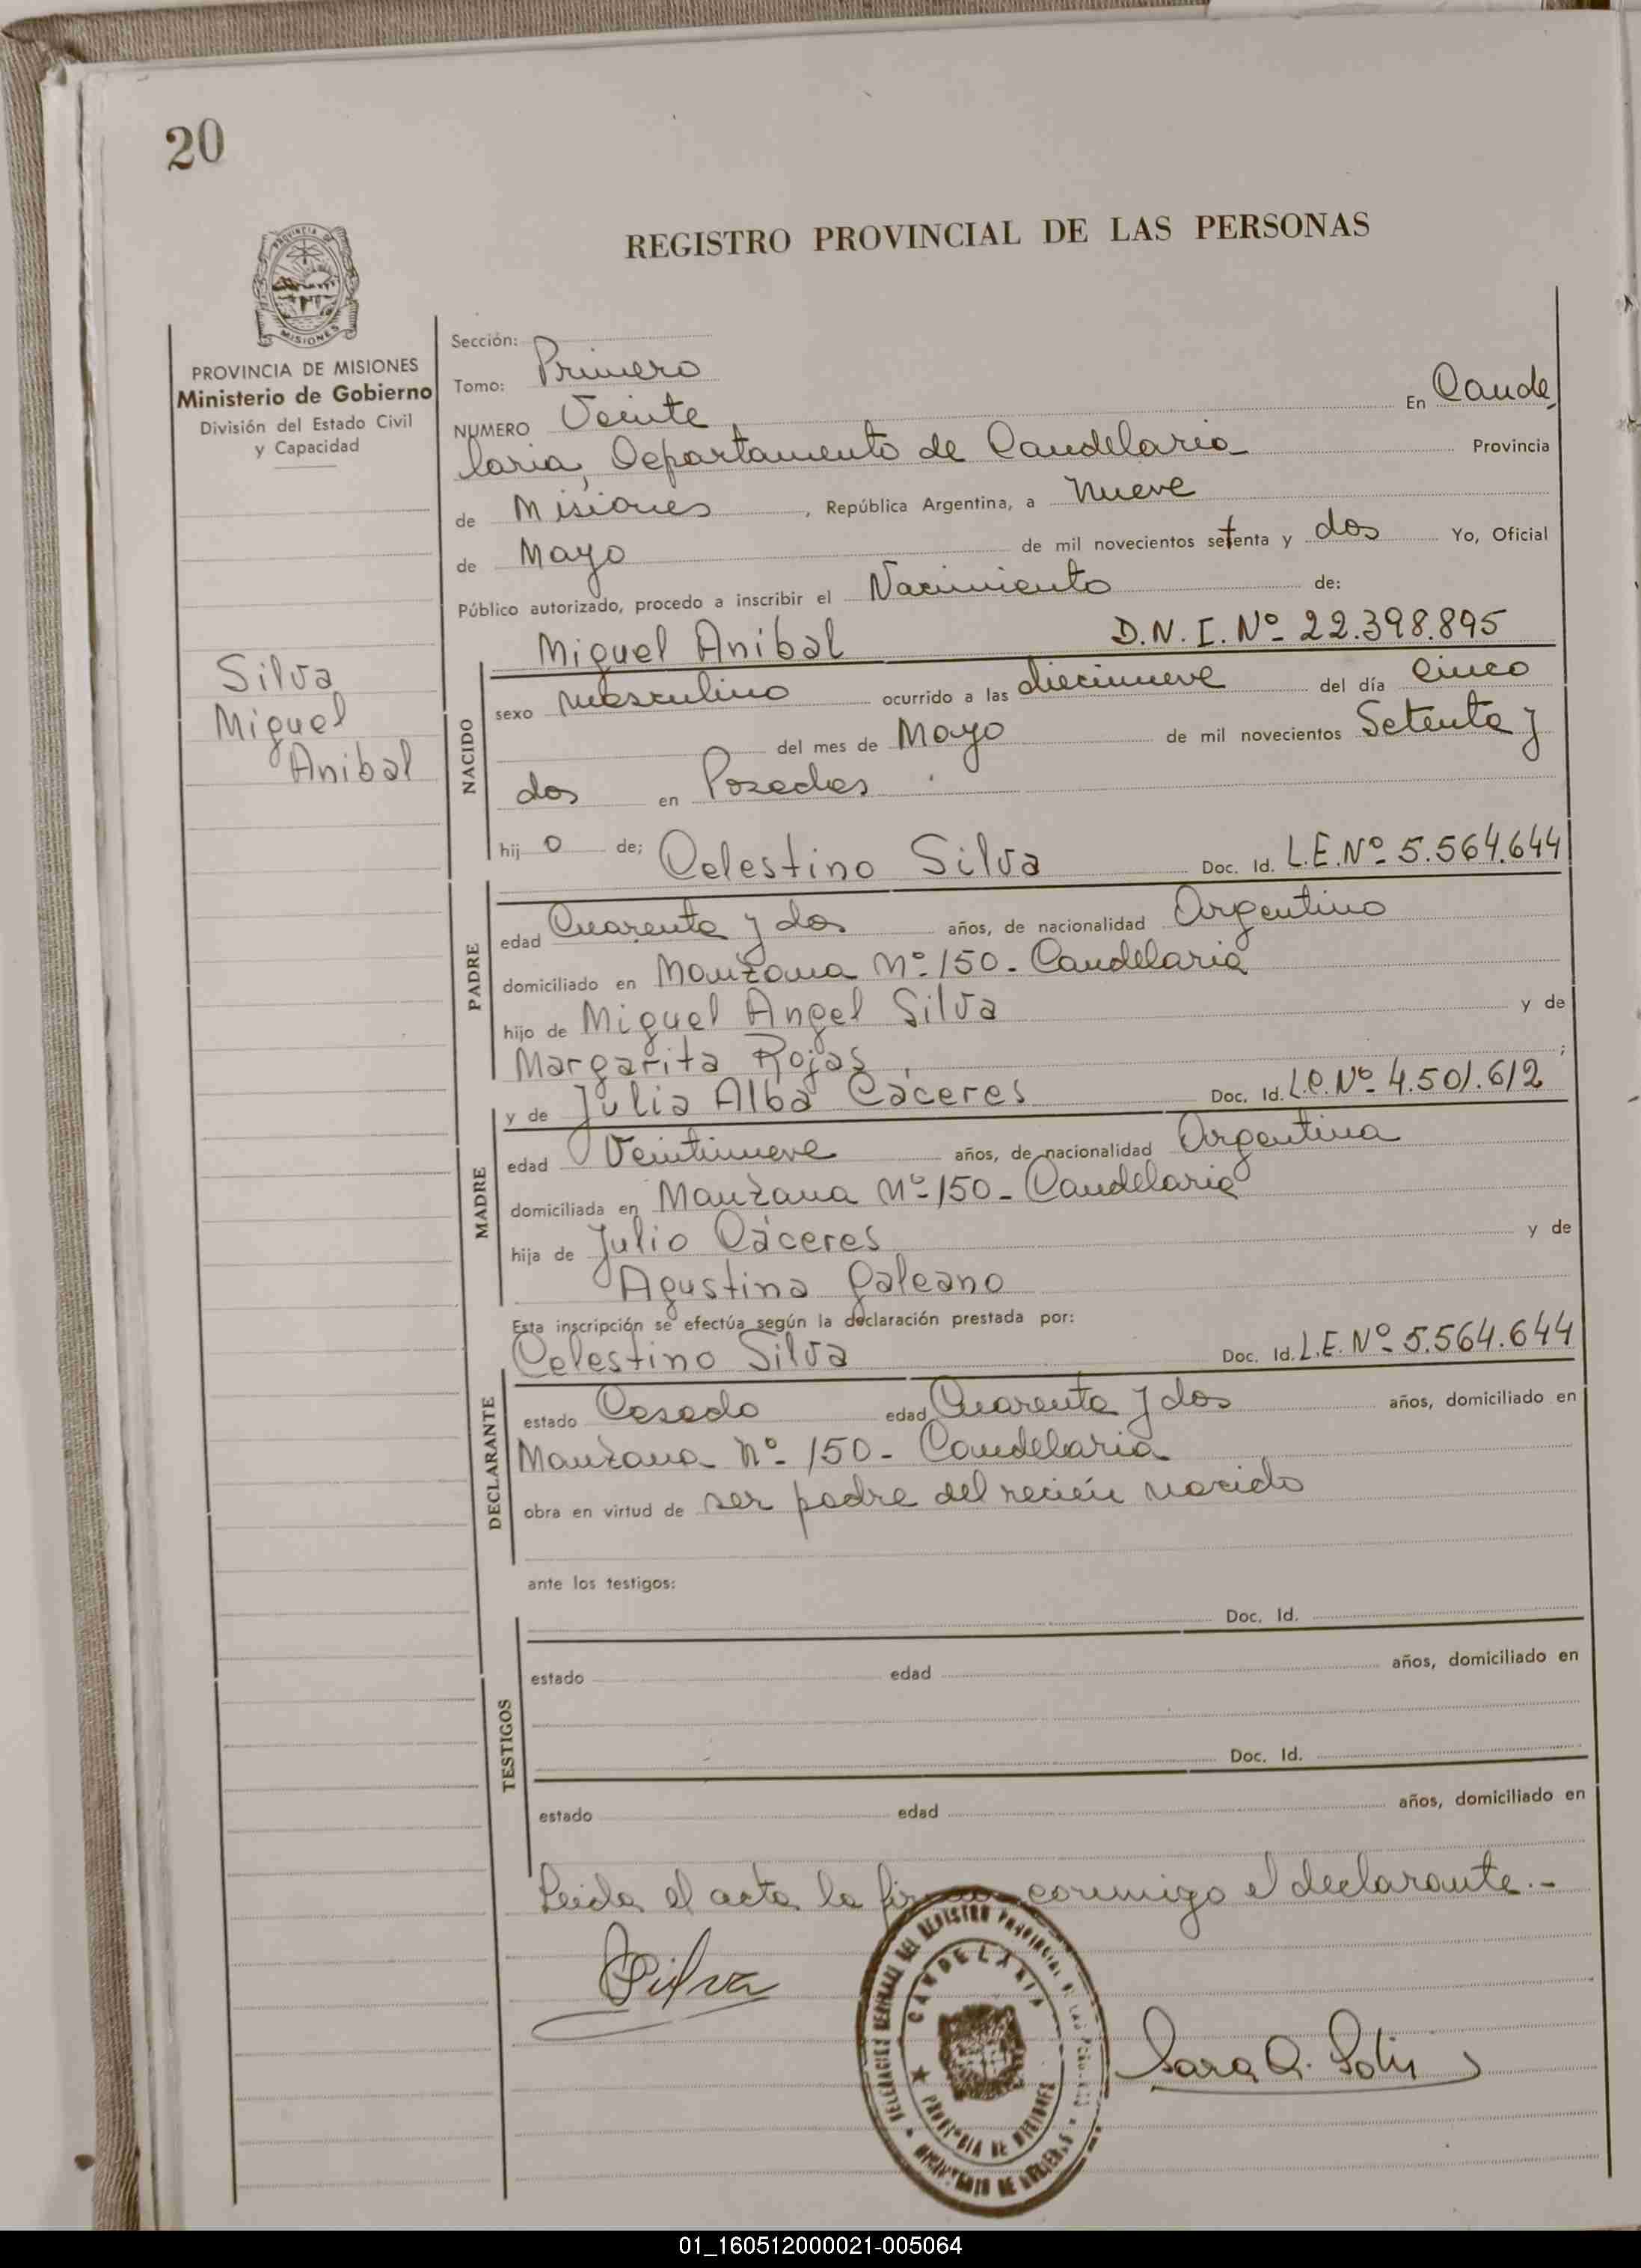 20
REGISTRO PROVINCIAL DE LAS PERSONAS
PROVINCIA DE
MISIONES
PROVINCIA DE MISIONES
Ministerio de Gobierno
División del Estado Civil
y Capacidad
Silva
Miguel
Anibal
Sección:
Tomo: Primero
NUMERO Veinte En Cande
laria, Departamento de Candelaria Provincia
de Misiones, República Argentina, a Nueve
de Mayo de mil novecientos setenta y dos Yo, Oficial
Público autorizado, procedo a inscribir el Nacimiento de:
Miguel Anibal D.N.I. Nº 22.398.895
NACIDO
sexo masculino ocurrido a las diecinueve del día Cinco
del mes de Mayo de mil novecientos Setenta y
dos en Posadas.
hij o de; Celestino Silva Doc. Id. L.E. Nº 5.564.644
PADRE
edad Cuarenta y dos años, de nacionalidad Argentino
domiciliado en Manzana Nº 150 - Candelaria
hijo de Miguel Angel Silva y de
Margarita Rojas ;
y de Julia Alba Cáceres Doc. Id. L.C. Nº 4.501.612
MADRE
edad Veintinueve años, de nacionalidad Argentina
domiciliada en Manzana Nº 150 - Candelaria
hija de Julio Cáceres y de
Agustina Galeano
Esta inscripción se efectúa según la declaración prestada por:
Celestino Silva Doc. Id. L.E. Nº 5.564.644
DECLARANTE
estado Casado edad Cuarenta y dos años, domiciliado en
Manzana Nº 150 - Candelaria
obra en virtud de ser padre del recién nacido
ante los testigos:
Doc. Id.
TESTIGOS
estado edad años, domiciliado en
Doc. Id.
estado edad años, domiciliado en
Leida el acta la firma conmigo el declarante.-
Silva
CANDELARIA
PROVINCIA DE MISIONES
Sara
01_160512000021-005064